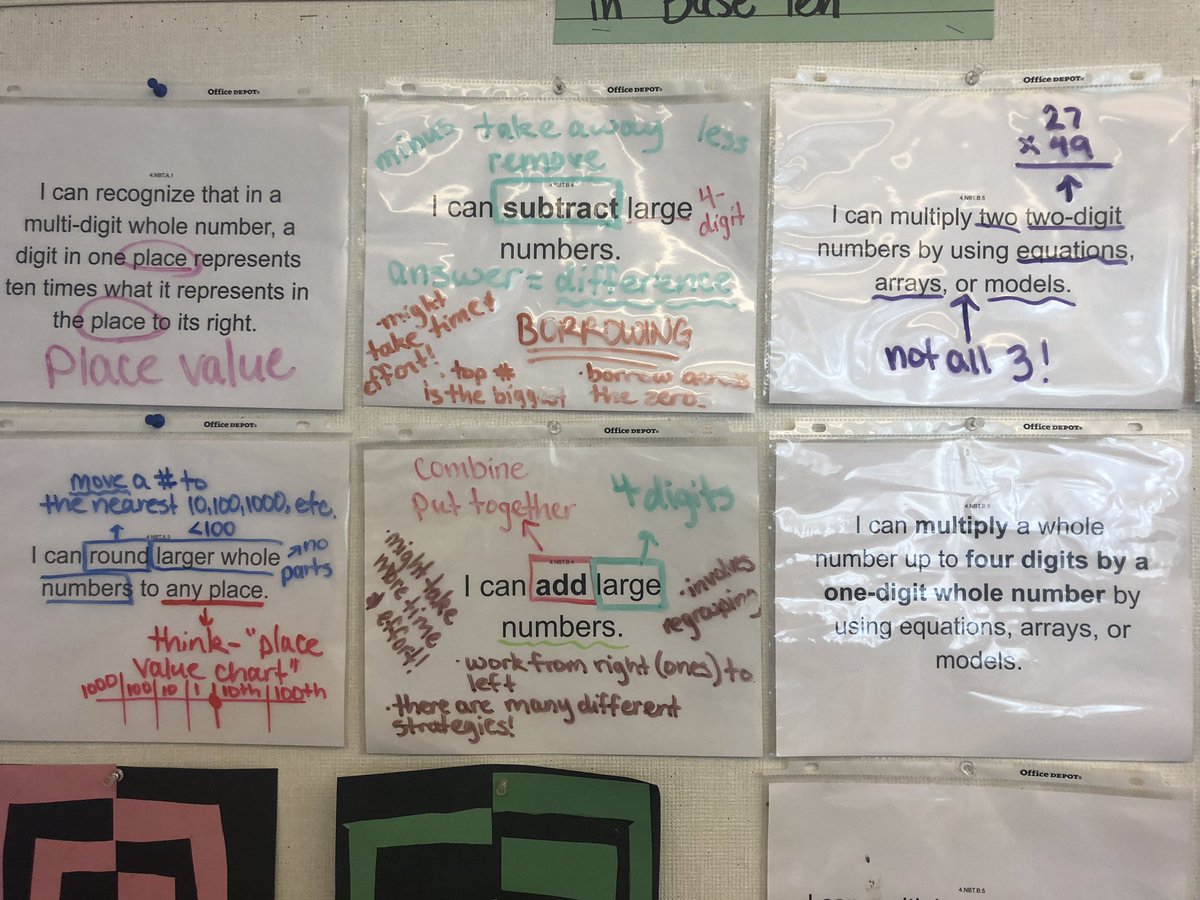 in Base Ten
Office DEPOT®
4.NBT.A.1
I can recognize that in a
multi-digit whole number, a
digit in one place represents
ten times what it represents in
the place to its right.
Place value
Office DEPOT®
minus take away less
remove
4.NBT.B.4
I can subtract large
4-
digit
numbers.
answer = difference
• might
take time &
effort!
BORROWING
• top #
is the biggest
• borrow across
the zero.
Office DEPOT®
27
x 49
4.NBT.B.5
I can multiply two two-digit
numbers by using equations,
arrays, or models.
not all 3!
Office DEPOT®
move a # to
the nearest 10,100,1000, etc.
<100
4.NBT.A.3
I can round larger whole
→ no
parts
numbers to any place.
think - "place
value chart"
1000 | 100 | 10 | 1 | 10th | 100th
Office DEPOT®
Combine
Put together
4 digits
4.NBT.B.4
I can add large
numbers.
• might take
more time
& effort!
• involves
regrouping
• work from right (ones) to
left
• there are many different
strategies!
Office DEPOT®
4.NBT.B.5
I can multiply a whole
number up to four digits by a
one-digit whole number by
using equations, arrays, or
models.
Office DEPOT®
4.NBT.B.5